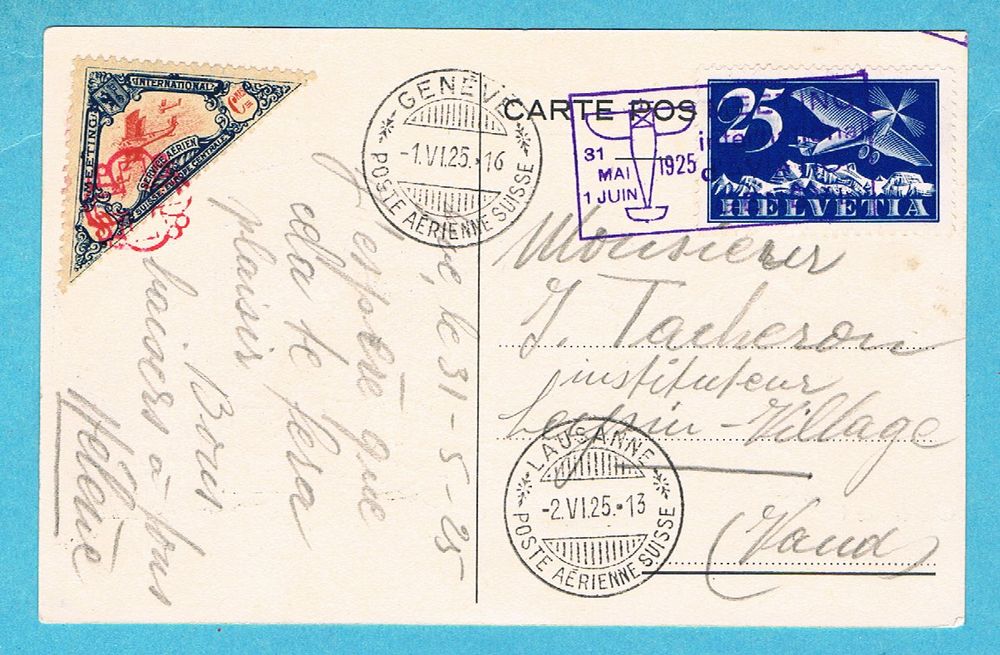 CARTE POS
GENÈVE
-1.VI.25.-16
POSTE AÉRIENNE SUISSE
31
MAI
1 JUIN
1925
25
HELVETIA
MEETING
INTERNATIONAL
SERVICE AÉRIEN
SUISSE-EUROPE CENTRALE
Monsieur
J. Tacheron
instituteur
Leysin-Village
(Vaud)
LAUSANNE
-2.VI.25.-13
POSTE AÉRIENNE SUISSE
le 31-5-25
J'espère que
cela te fera
plaisir
Bons
baisers à tous
Hélène